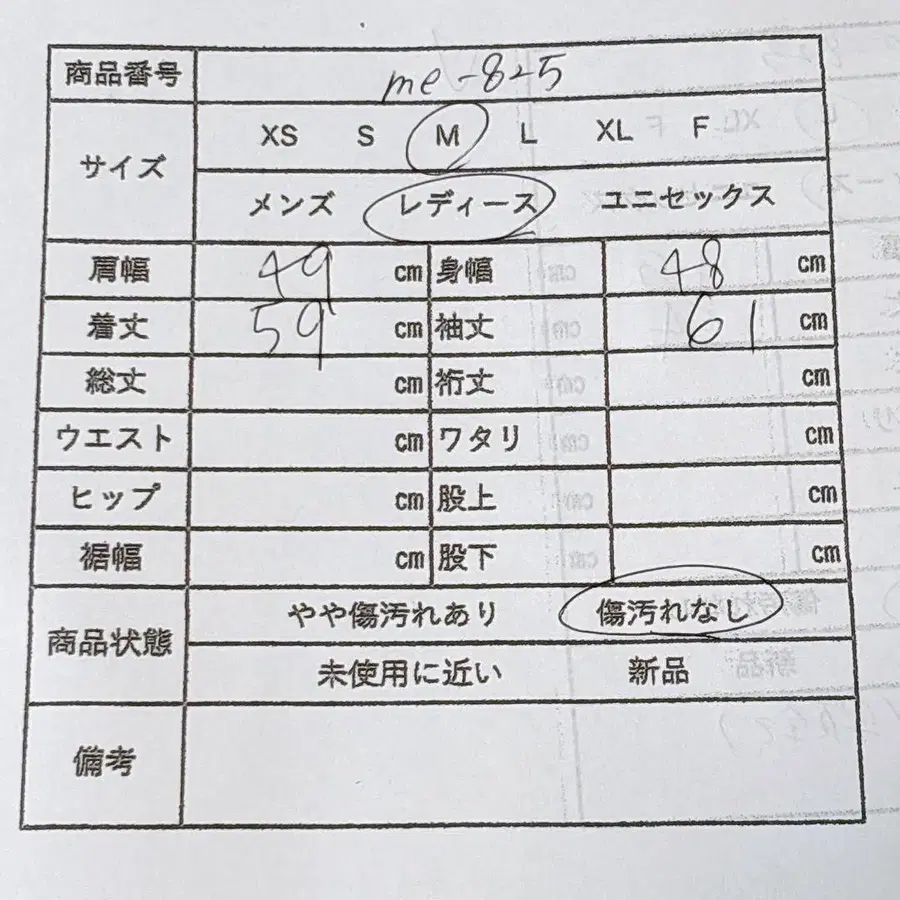 商品番号 me-825
サイズ XS S M L XL F
メンズ レディース ユニセックス
肩幅 49 cm 身幅 48 cm
着丈 59 cm 袖丈 61 cm
総丈 cm 裄丈 cm
ウエスト cm ワタリ cm
ヒップ cm 股上 cm
裾幅 cm 股下 cm
商品状態 やや傷汚れあり 傷汚れなし
未使用に近い 新品
備考